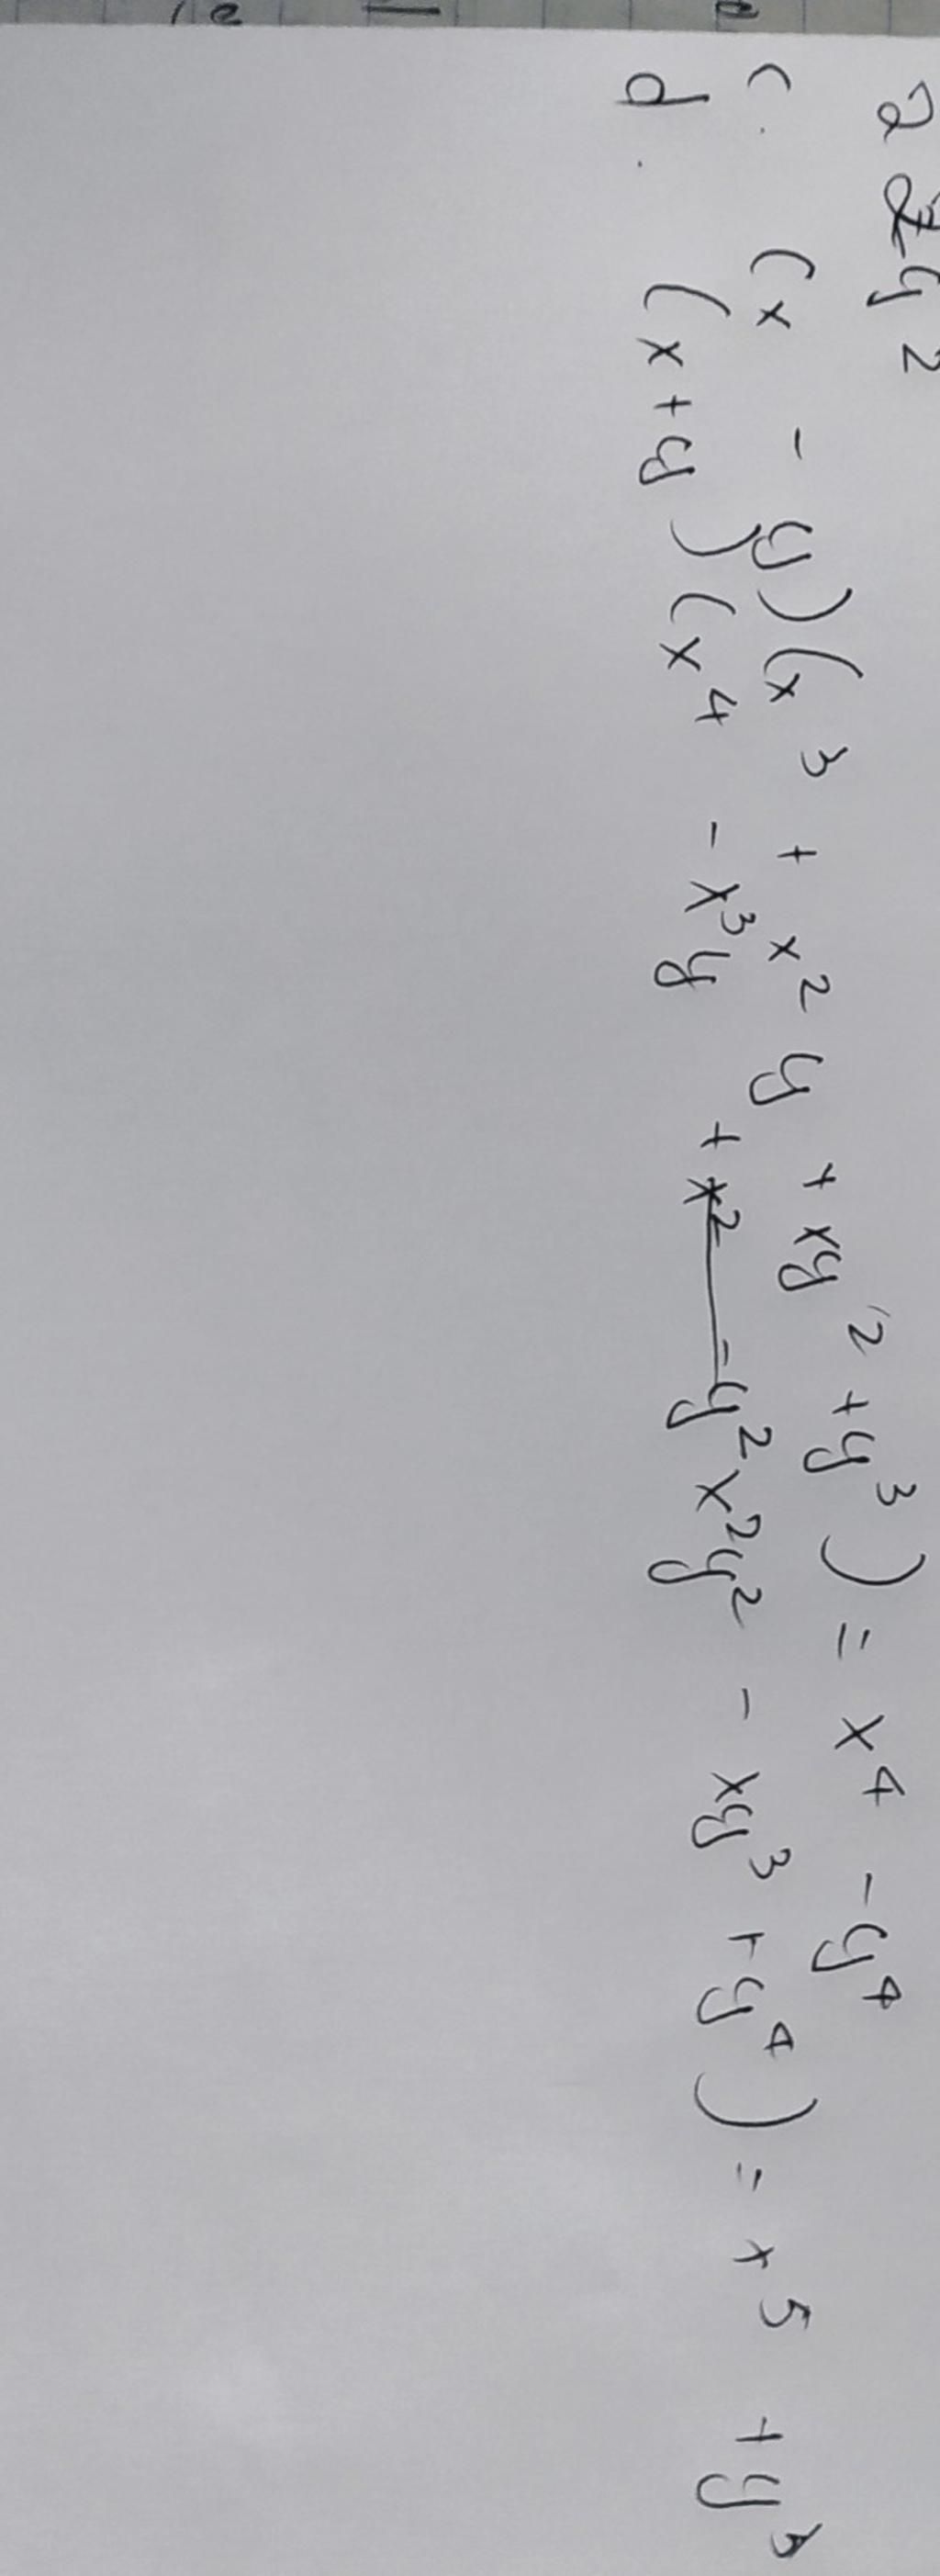 2 y²
c. (x - y)(x³ + x²y + xy² + y³) = x⁴ - y⁴
d. (x + y)(x⁴ - x³y + x²y² - xy³ + y⁴) = x⁵ + y